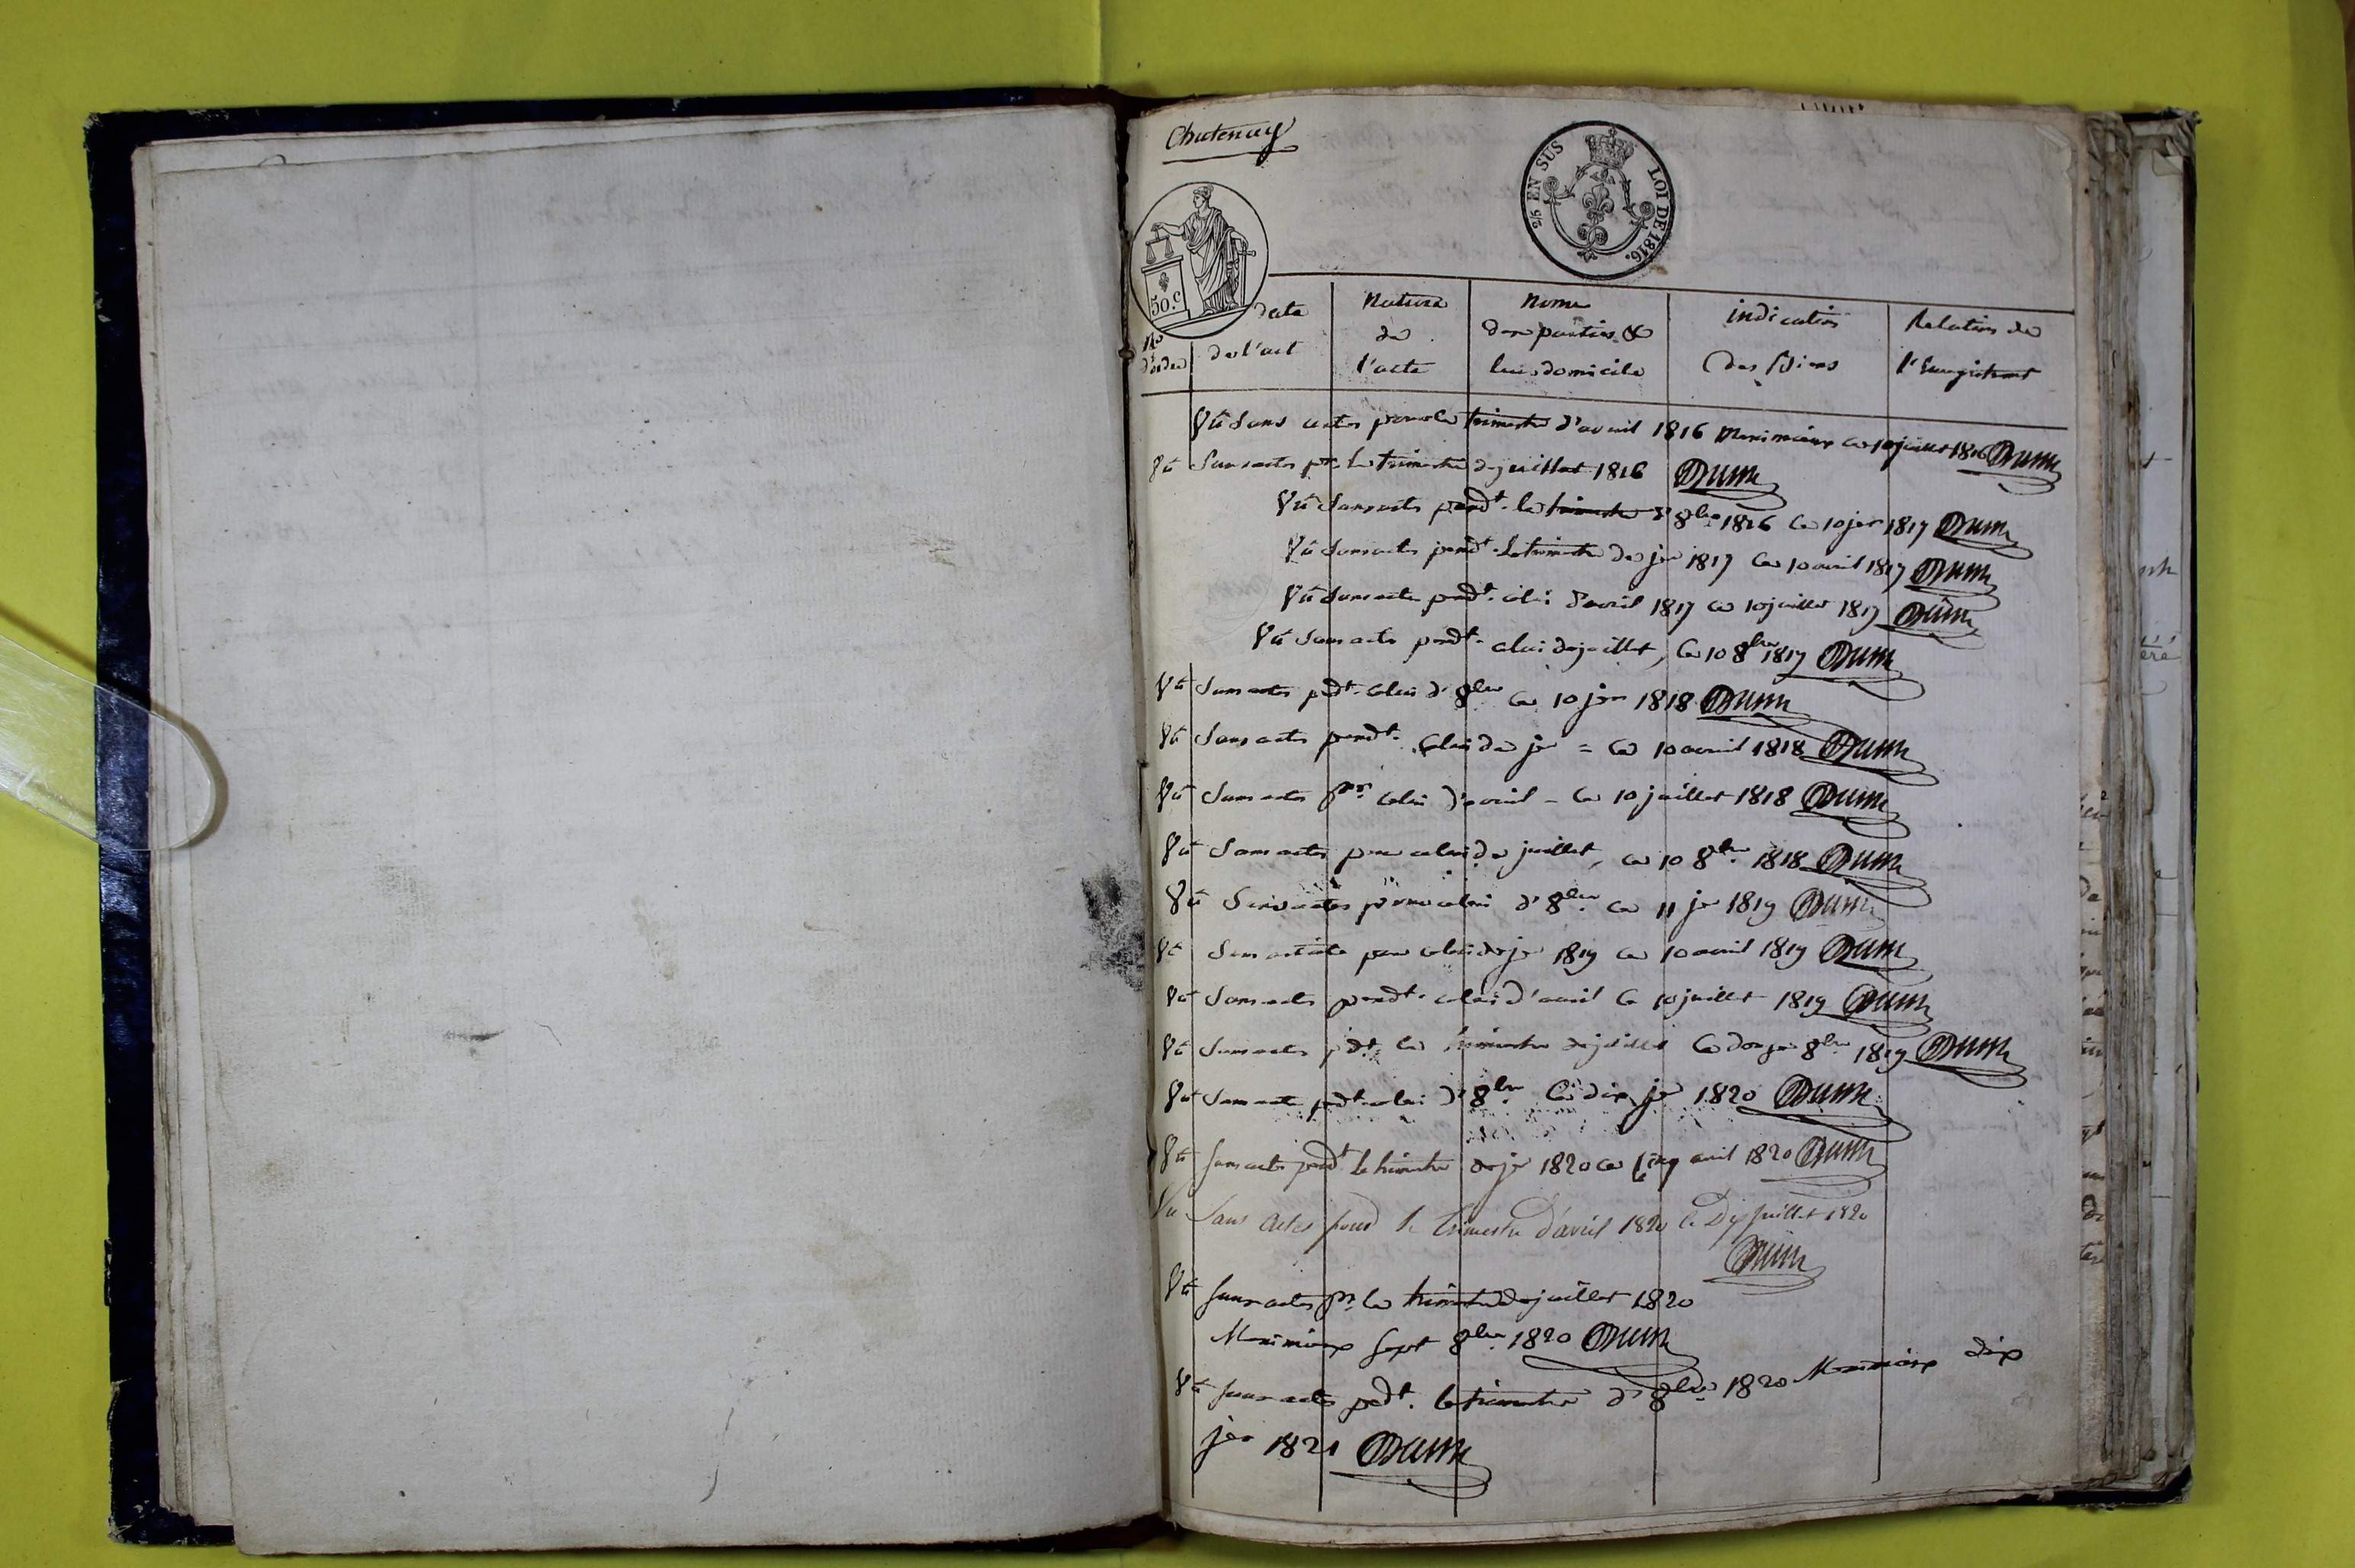 Chatenay
2/5 EN SUS LOI DE 1816.
50.c
No d'ordre
date de l'act
Nature de l'acte
Noms des parties & leurs domicile
indication des Biens
Relation de l'Enregistrent
Vû Sans actes pour le trimestre d'avril 1816 Meximieux le 10 juillet 1816
Vû Sans actes pr. le trimestre de juillet 1816
Vû Sans actes pendt. le trimestre d'8bre 1816 le 10 jer 1817
Vû Sans actes pendt. le trimestre de jer 1817 le 10 avril 1817
Vû Sans actes pendt. celui d'avril 1817 le 10 juillet 1817
Vû Sans acte pendt. celui de juillet, le 10 8bre 1817
Vû Sans actes pendt. celui d'8bre le 10 jer 1818
Vû Sans actes pendt. celui de jer = le 10 avril 1818
Vû Sans actes pr. celui d'avril - le 10 juillet 1818
Vû Sans actes pour celui de juillet, le 10 8bre 1818
Vû Sans actes pour celui d'8bre. le 11 jer 1819
Vû Sans actes pour celui de jer 1819 le 10 avril 1819
Vû Sans actes pendt. celui d'avril le 10 juillet 1819
Vû Sans actes pdt. le trimestre de juillet le douze 8bre 1819
Vû Sans acte pdt. celui d'8bre. le dix jer 1820
Vû sans actes pendt le trimestre de jer 1820 le cinq avril 1820
Vu Sans Actes pend le trimestre d'avril 1820 le Dix Juillet 1820
Vû sans actes pr. le trimestre de juillet 1820
Meximieux sept 8bre. 1820
Vû sans actes pendt. le trimestre d'8bre 1820 Meximieux dix
jer 1821